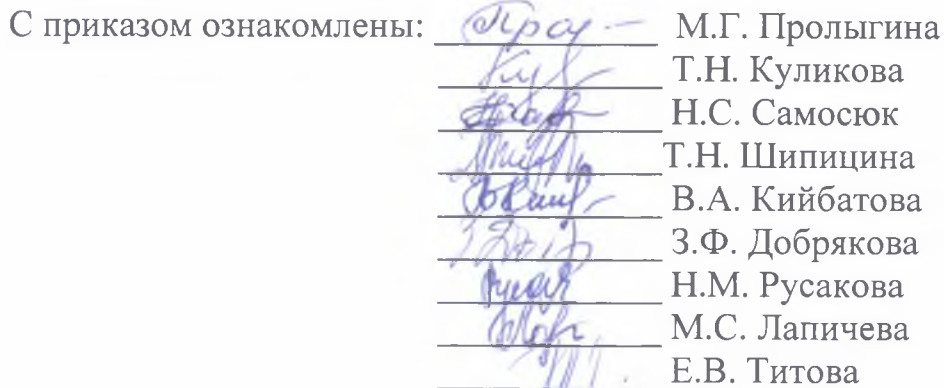 С приказом ознакомлены: М.Г. Пролыгина
Т.Н. Куликова
Н.С. Самосюк
Т.Н. Шипицина
В.А. Кийбатова
З.Ф. Добрякова
Н.М. Русакова
М.С. Лапичева
Е.В. Титова